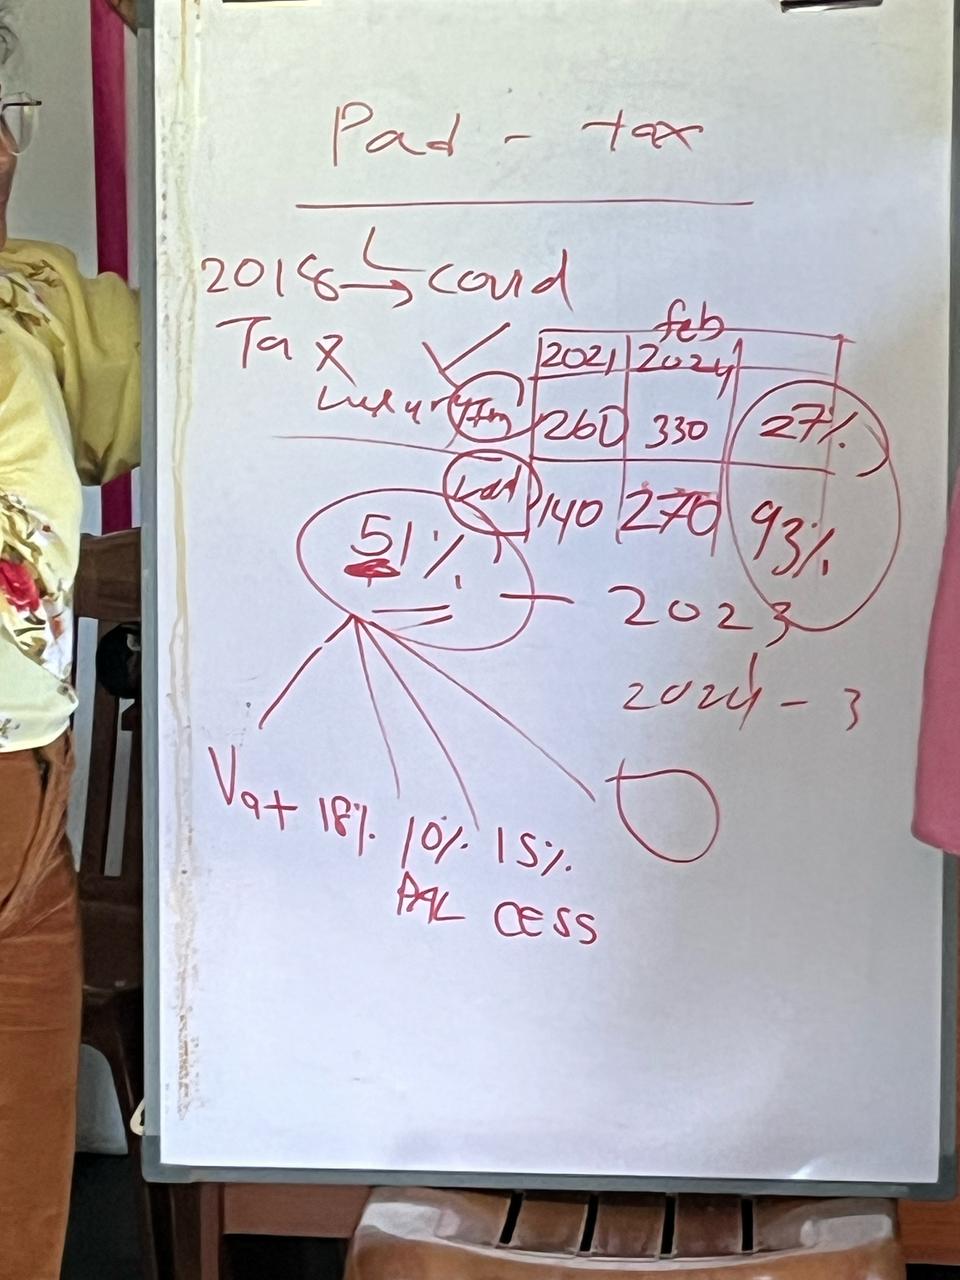 Pad - tax
2018 → covid
Tax
luxury
feb
2021 2024
260 330 27%
Local 140 270 93%
51% - 2023
2024 - 3
Vat 18% 10% 15%
PAL CESS